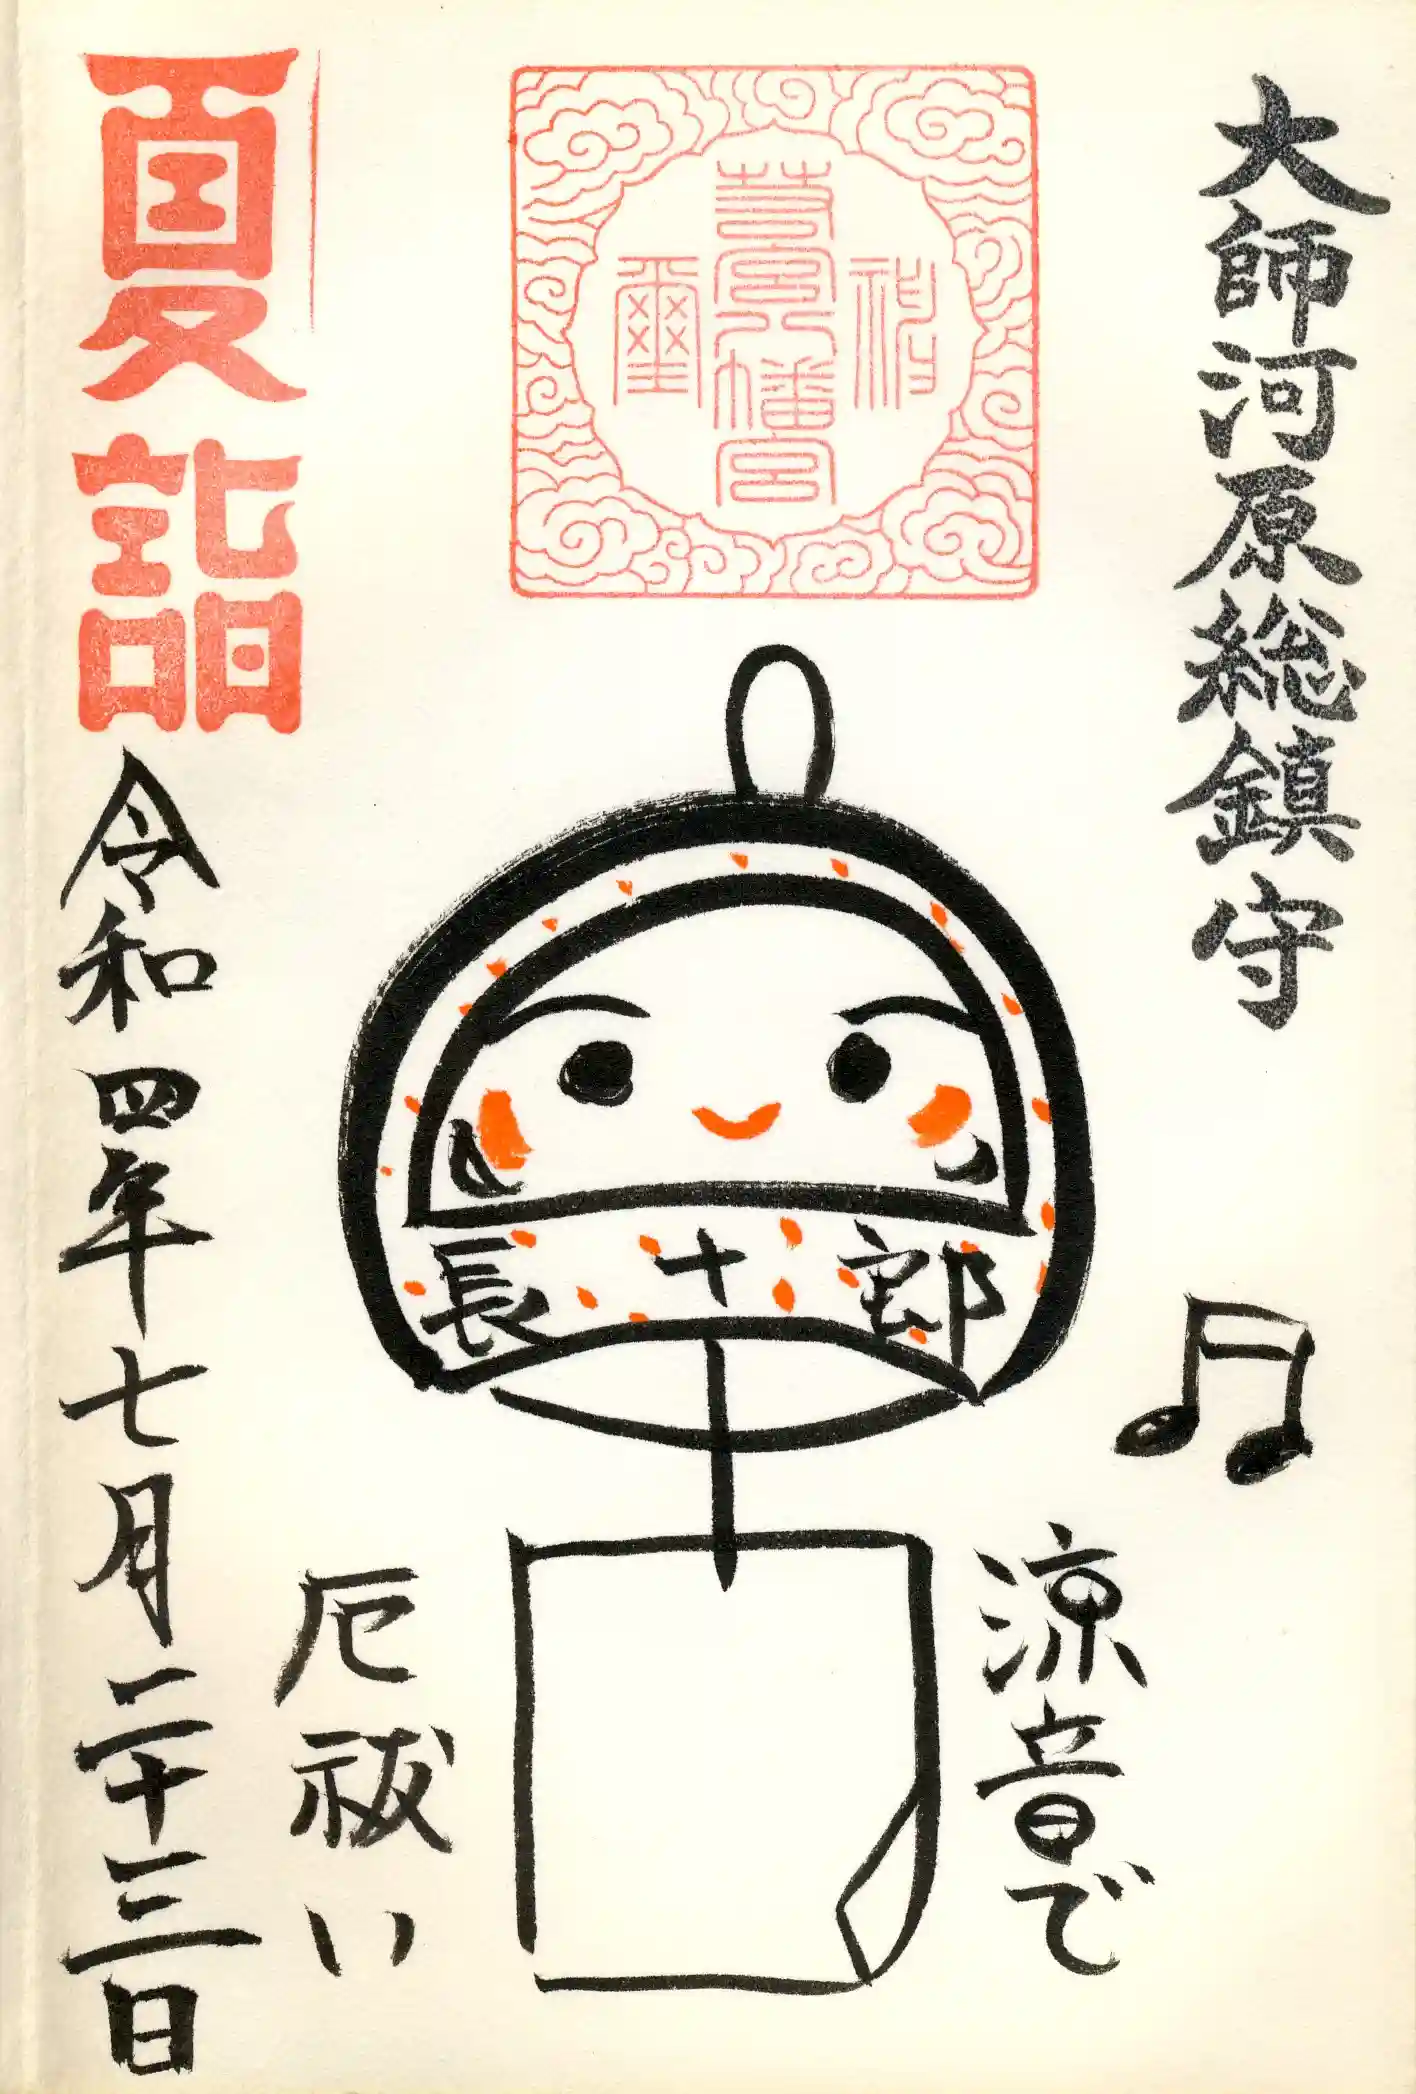 大師河原総鎮守
神
若宮八幡宮
璽
長十郎
涼音で
厄祓い
夏詣
令和四年七月二十三日